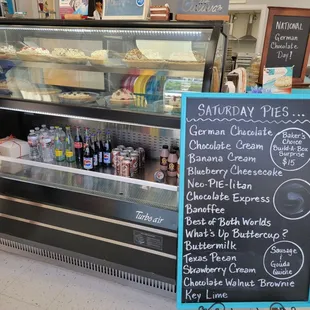 NATIONAL
German
Chocolate
Day!
SATURDAY PIES...
German Chocolate
Chocolate Cream
Banana Cream
Blueberry Cheesecake
Neo-PIE-litan
Chocolate Express
Banoffee
Best of Both Worlds
What's Up Buttercup?
Buttermilk
Texas Pecan
Strawberry Cream
Chocolate Walnut Brownie
Key Lime
Baker's
Choice
Build-A-Box
Surprise
$15
Sausage
&
Gouda
Quiche
Turbo air